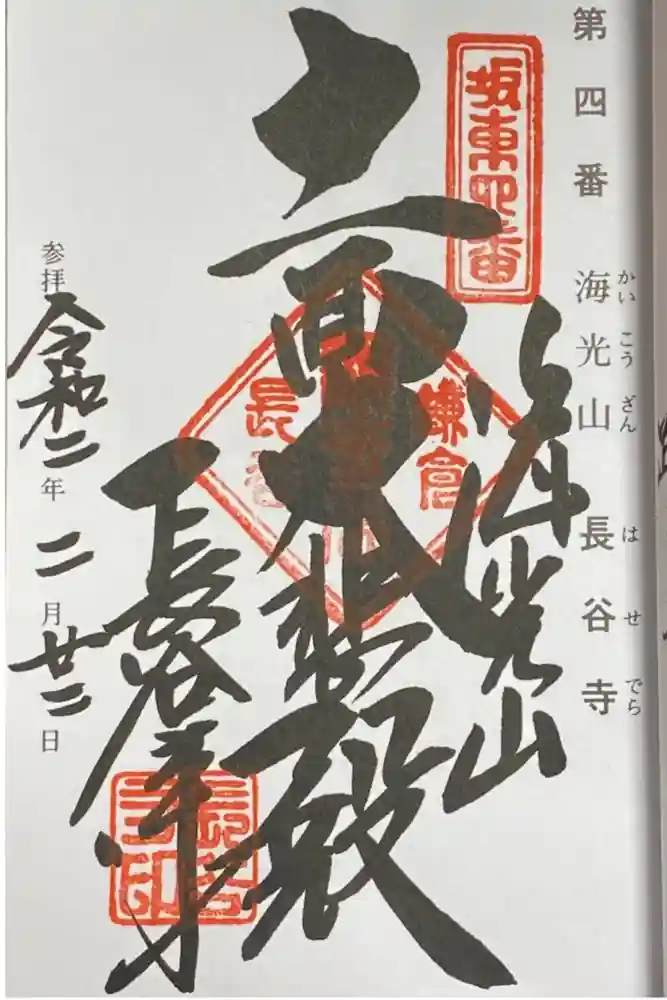 第四番 海光山 長谷寺
かいこうざん はせでら
坂東四番
海光山
十一面大悲殿
鎌倉
長谷寺
長谷寺印
参拝 令和二年二月廿二日